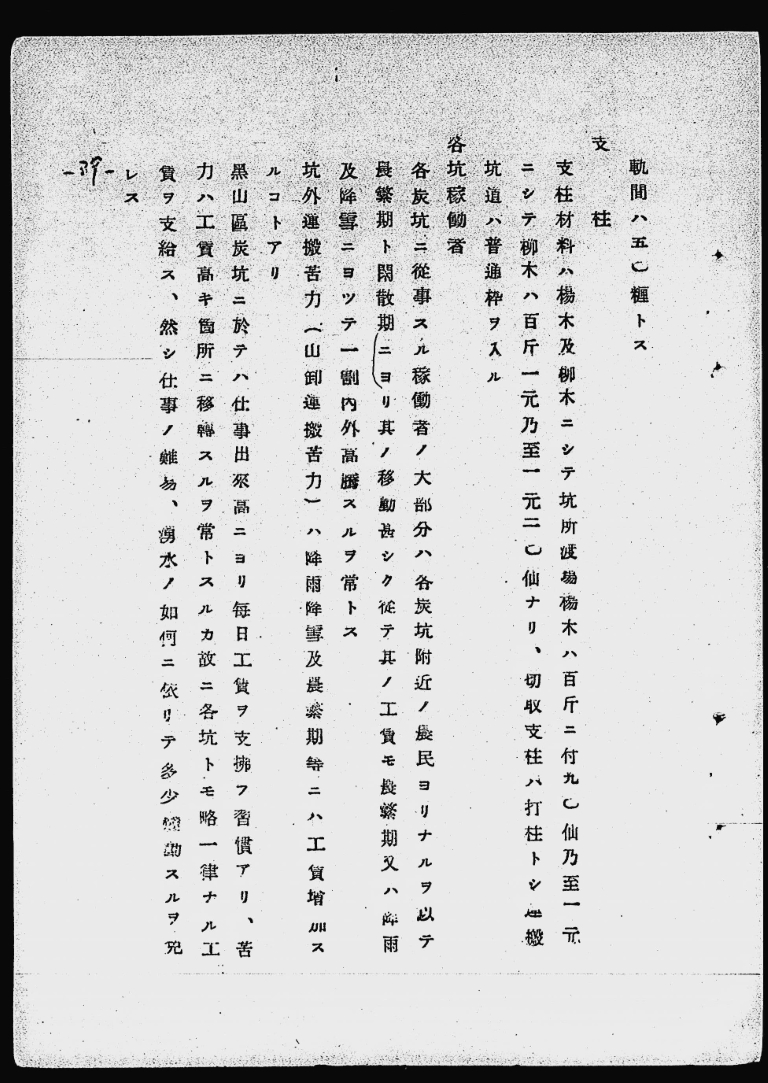 軌間ハ五〇糎トス
支柱
支柱材料ハ楊木及柳木ニシテ坑所渡場楊木ハ百斤ニ付九〇仙乃至一元
ニシテ柳木ハ百斤一元乃至一元二〇仙ナリ、切取支柱ハ打柱トシ運搬
坑道ハ普通枠ヲ入ル
各坑稼働者
各炭坑ニ從事スル稼働者ノ大部分ハ各炭坑附近ノ農民ヨリナルヲ以テ
農繁期ト閑散期ニヨリ其ノ移動甚シク從テ其ノ工賃モ農繁期又ハ降雨
及降雪ニヨツテ一割內外高騰スルヲ常トス
坑外運搬苦力(山卸運搬苦力)ハ降雨降雪及農繁期等ニハ工賃增加ス
ルコトアリ
黑山區炭坑ニ於テハ仕事出來高ニヨリ每日工賃ヲ支拂フ習慣アリ、苦
力ハ工賃高キ箇所ニ移轉スルヲ常トスルカ故ニ各坑トモ略一律ナル工
賃ヲ支給ス、然シ仕事ノ難易、湧水ノ如何ニ依リテ多少變動スルヲ免
レス
-39-